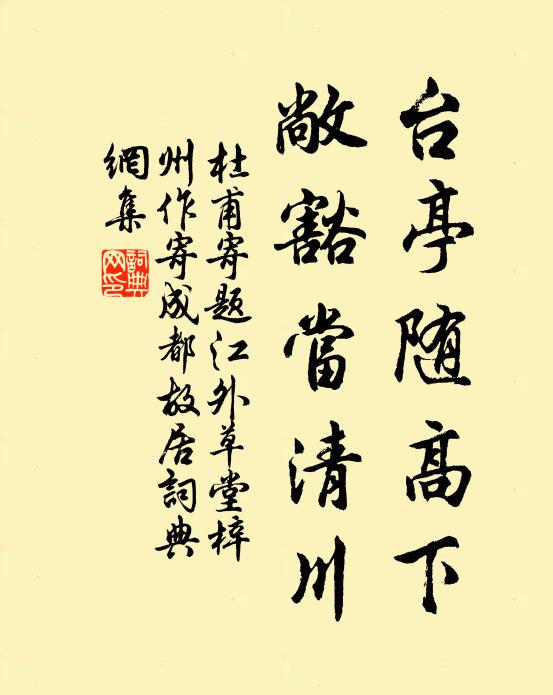 台亭随高下
敞豁當清川
杜甫寄题江外草堂梓
州作寄成都故居詞典
網集
詞典网印